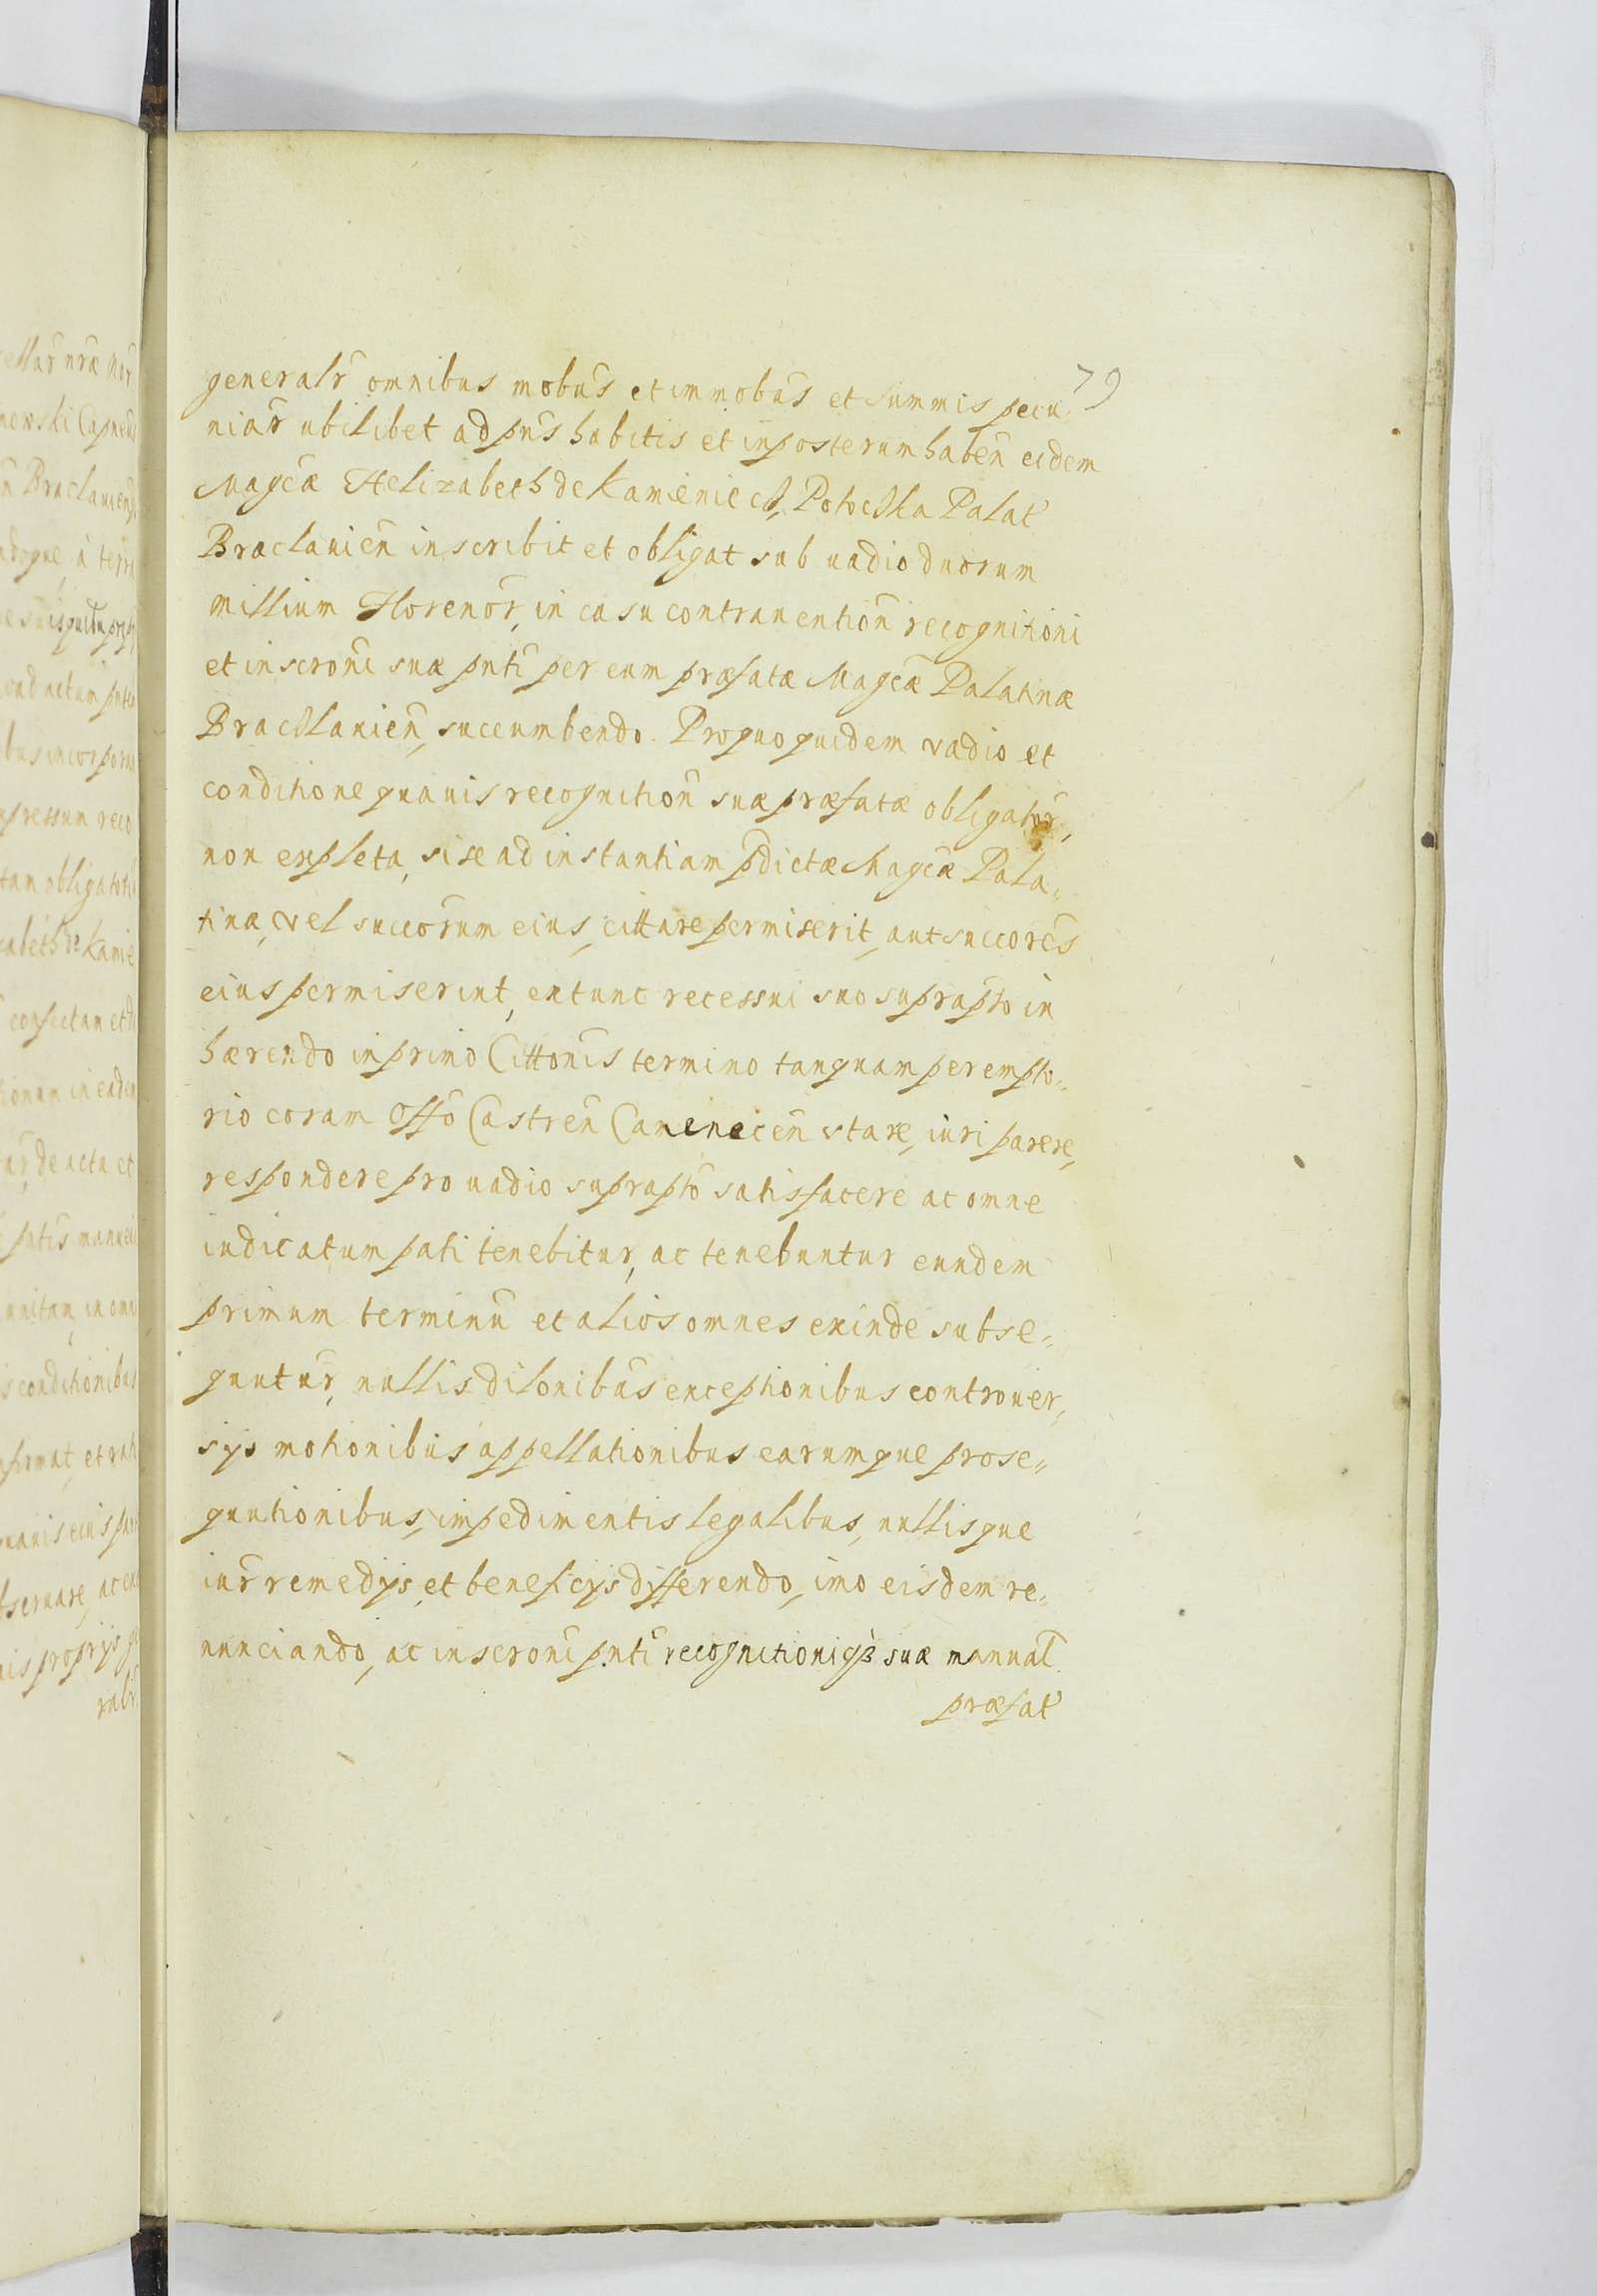 79
generalr̃ omnibus mobũs et immobũs et summis pecu-
niar̃ ubilibet ad pñs habitis et in posterum habeñ eidem
Magcæ Helizabeth de Kamieniecz, Potocka Palat
Braclavieñ inscribit et obligat sub uadio duorum
millium Florenor̃, in casu contrauentioñ recognitioni
et inscronĩ suæ pñti per eum præfatæ Magcæ Palatinæ
Bracklanieñ, succumbendo. Pro quo quidem vadio et
conditione quauis recognitioñ suæ præfatæ obligator̃,
non expleta, si se ad instantiam pdictæ Magcæ Pala=
tinæ, vel succorum eius, cittare permiserit, aut succores
eius permiserint, extunc recessui suo suprapto in
hærendo in primo Cittonĩs termino tanquam perempto=
rio coram Offo Castreñ Caneneceñ stare, iuri parere,
respondere pro uadio suprapto satisfacere ac omne
iudicatum pati tenebitur, ac tenebuntur eundem
primum terminũ et alios omnes exinde subse=
quutur̃, nullis dilonibũs exceptionibus controuer=
sÿs motionibus appellationibus earumque prose=
quutionibus, impedimentis legalibus, nullisque
iur̃ remedÿs, et beneficÿs differendo, imo eisdem re=
nunciando, ac inscronĩ pñti recognitioniqȝ suæ manual
præfat